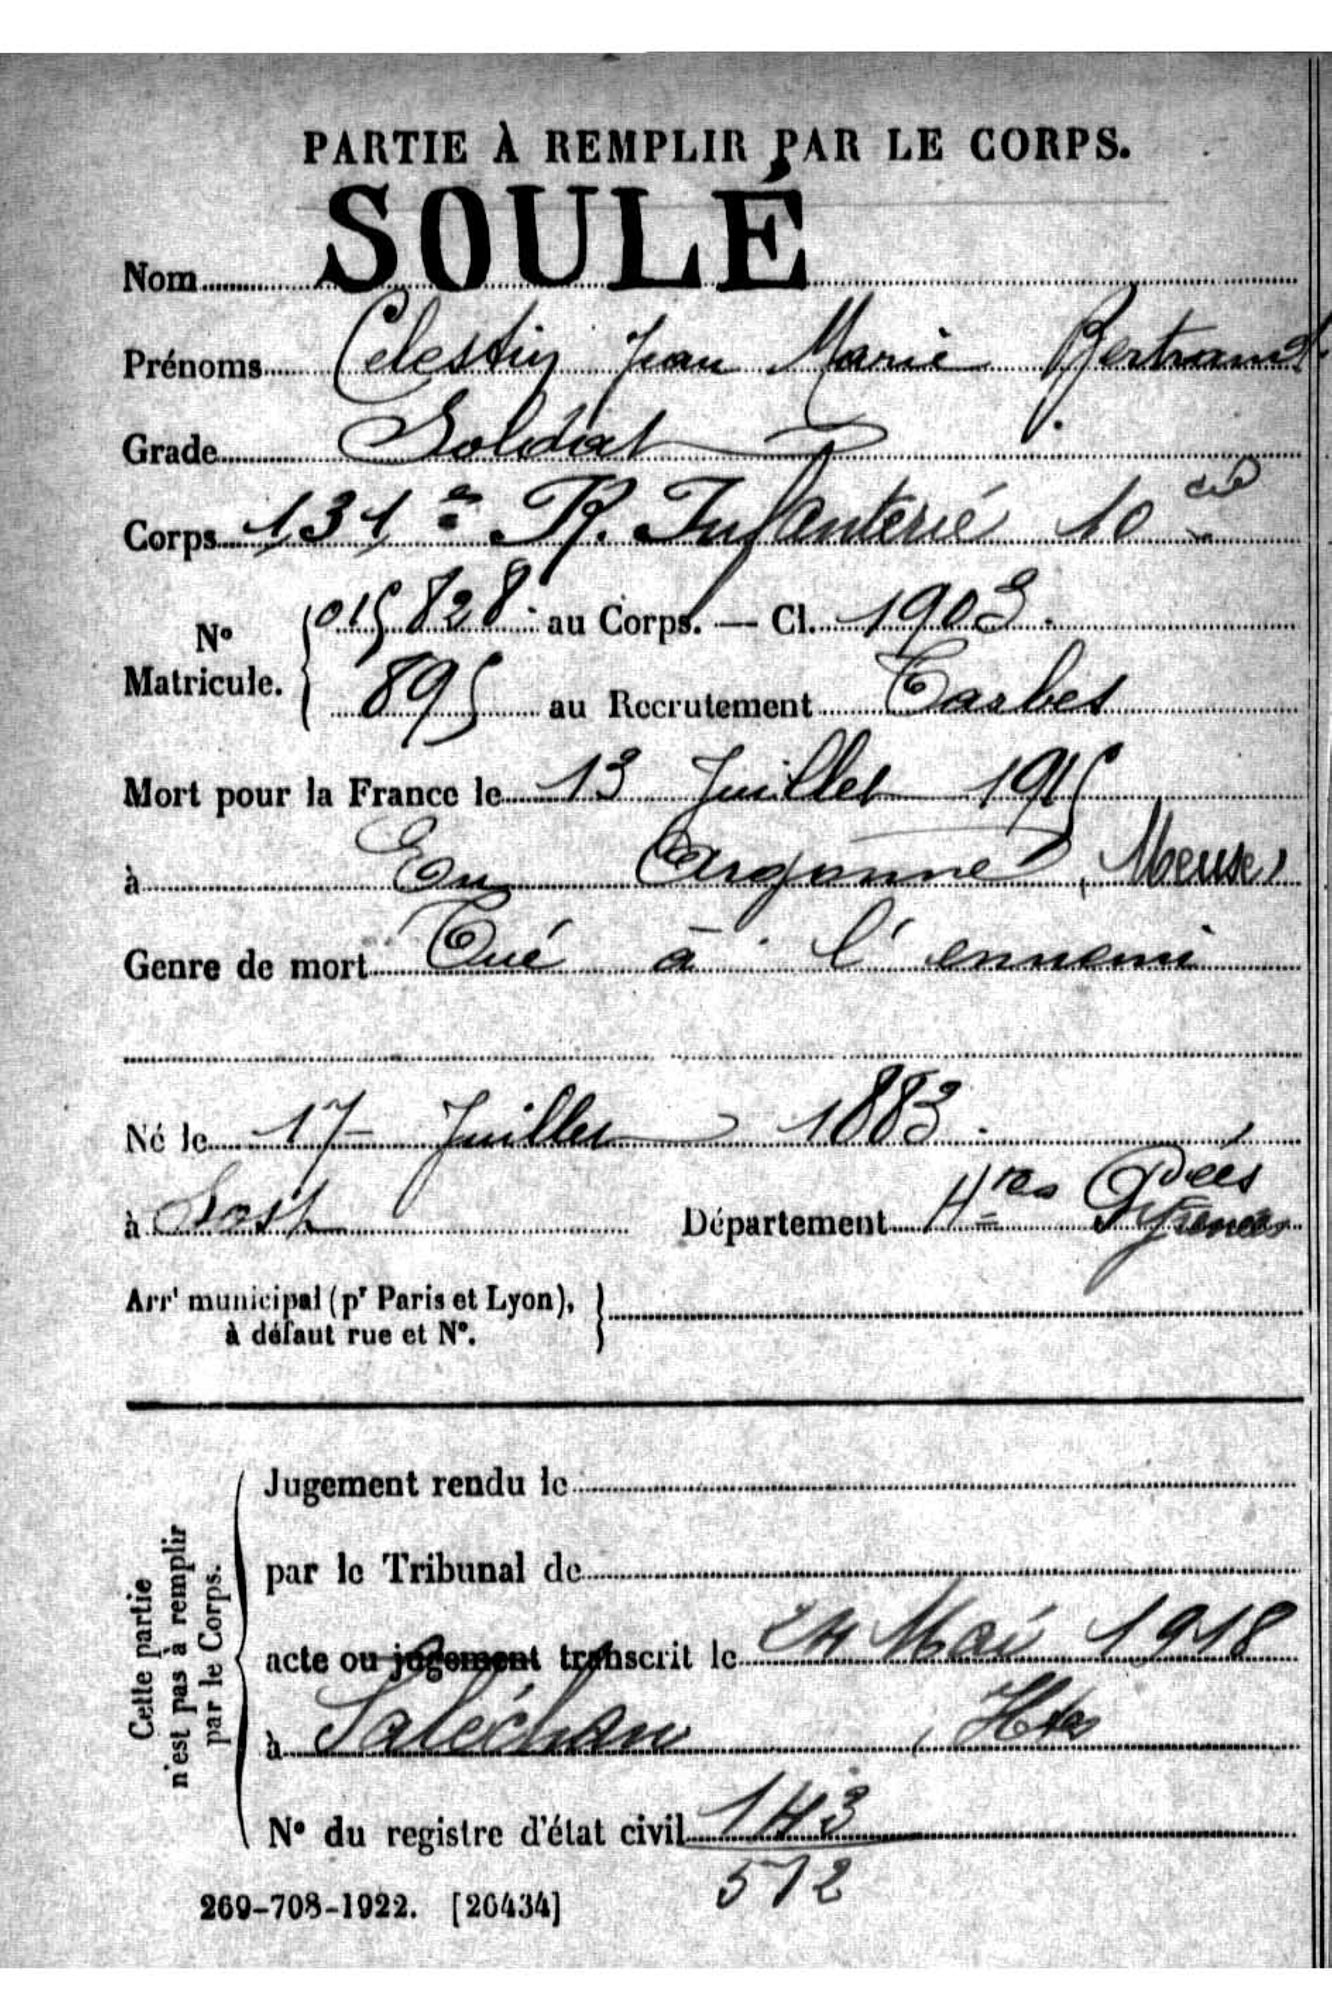 PARTIE À REMPLIR PAR LE CORPS.
Nom SOULÉ
Prénoms Celestin Jean Marie Bertrand.
Grade Soldat
Corps 131e R. Infanterie 10 cie
No Matricule. { 015828 au Corps. — Cl. 1903.
895 au Recrutement Tarbes
Mort pour la France le 13 Juillet 1915
à En Argonne (Meuse)
Genre de mort Tué à l'ennemi
Né le 17 Juillet 1883.
à Sost Département Htes Pyrénées
Arrt municipal (pr Paris et Lyon), }
à défaut rue et No.
Cette partie n'est pas à remplir par le Corps.
Jugement rendu le
par le Tribunal de
acte ou jugement transcrit le 24 Mai 1918
à Saléchan, Htes
No du registre d'état civil 143
572
269-708-1922. [26434]